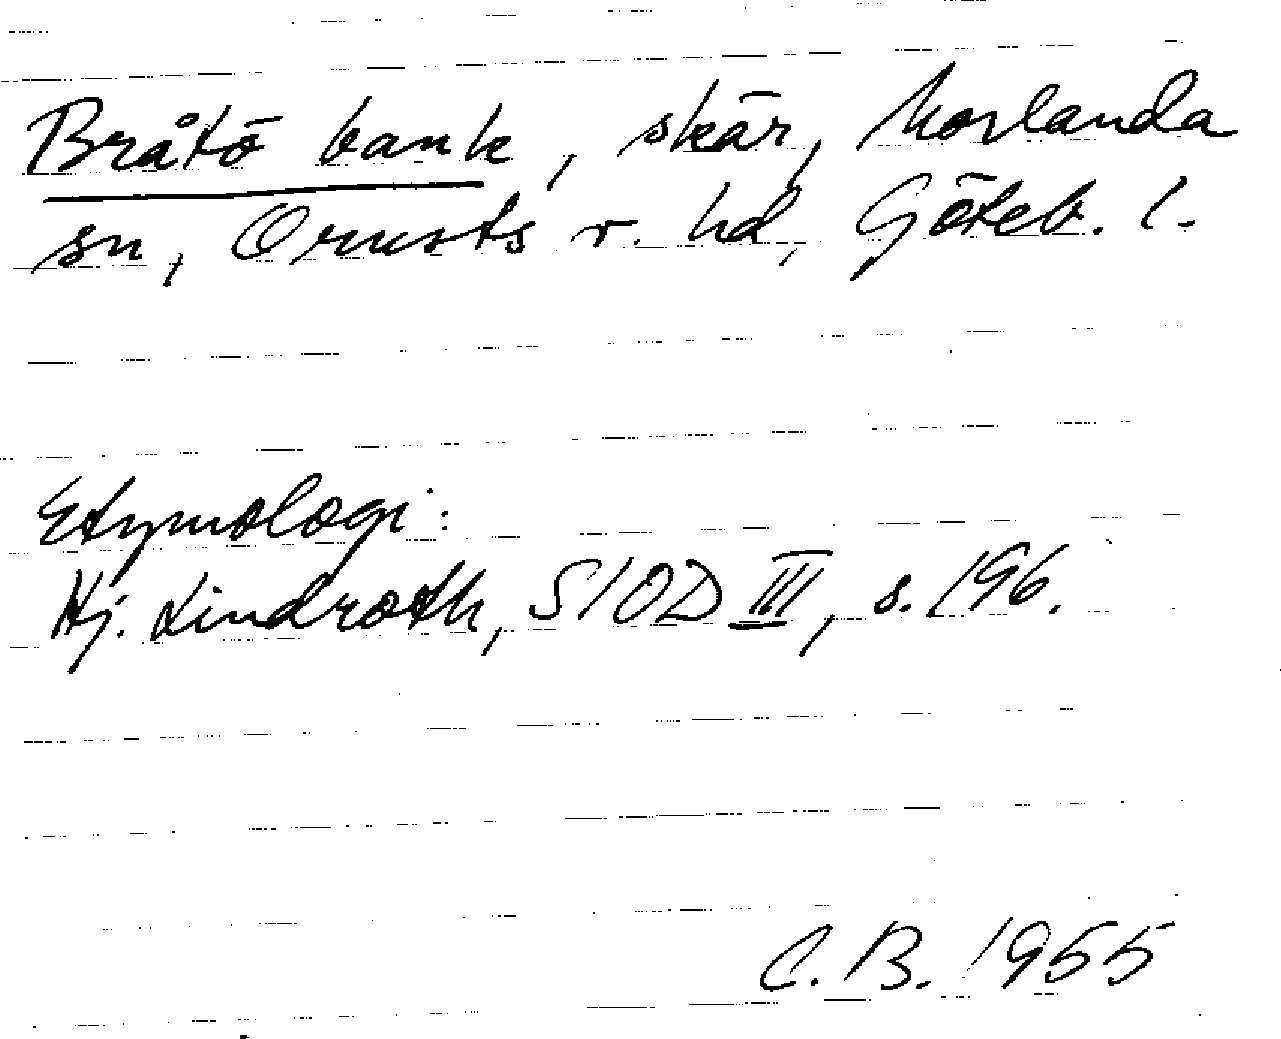 Bråtö bank, skär, Morlanda
sn, Orusts v. hd, Göteb. l.
Etymologi:
Hj. Lindroth, SIOD III, s. 196.
C. B. 1955